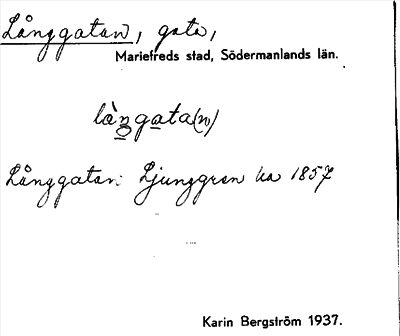 Långgatan, gata,
Mariefreds stad, Södermanlands län.
làngata(n)
Långgatan: Ljunggren ka 1857
Karin Bergström 1937.